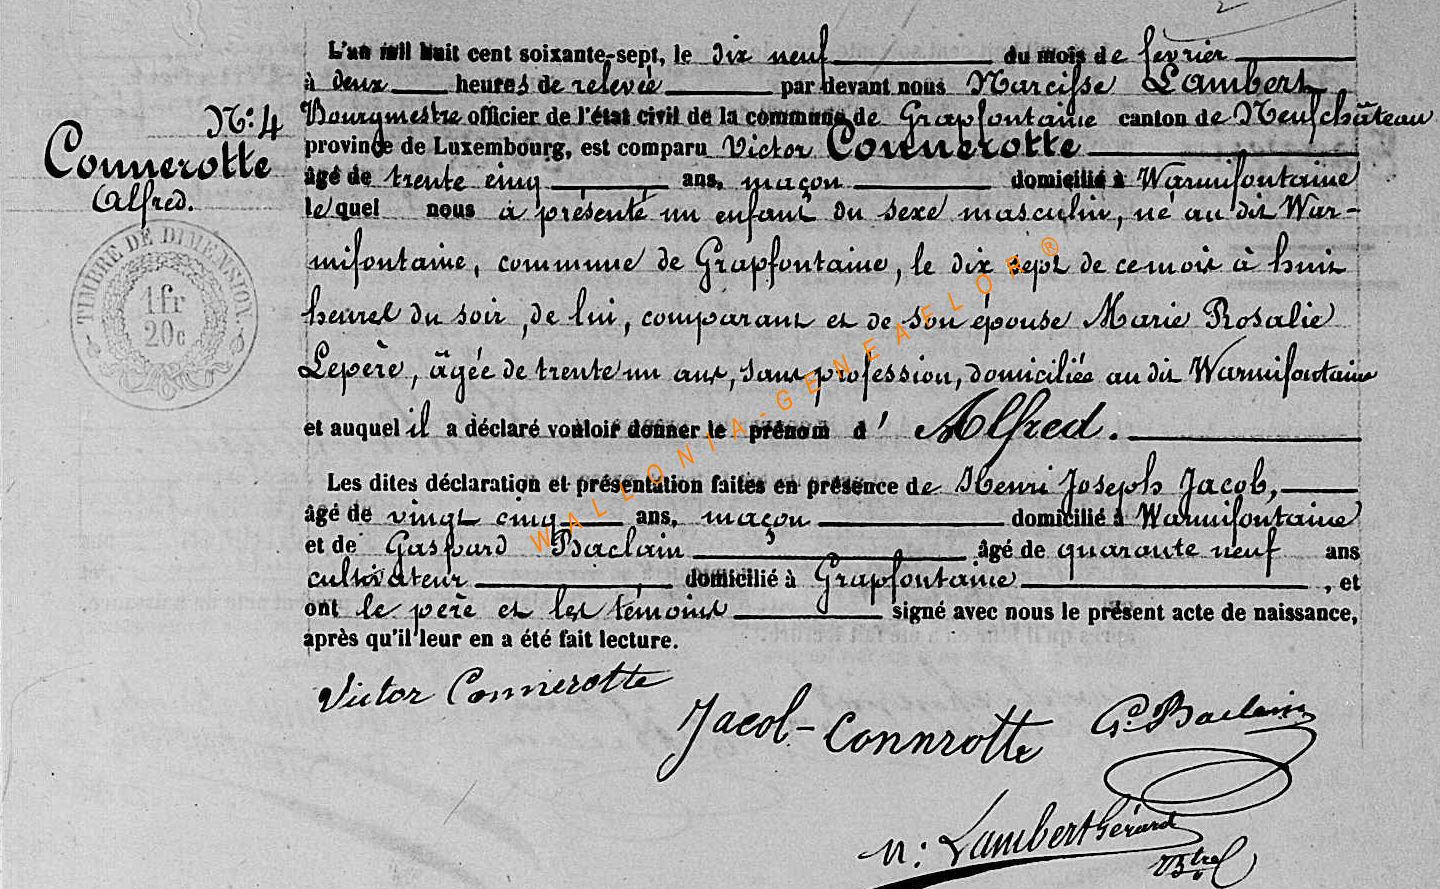 L'an mil huit cent soixante-sept, le dix neuf du mois de février
à deux heures de relevée par devant nous Narcisse Lambert
Bourgmestre officier de l'état civil de la commune de Grapfontaine canton de Neufchâteau
province de Luxembourg, est comparu Victor Connerotte
âgé de trente cinq ans, maçon domicilié à Warmifontaine
lequel nous a présenté un enfant du sexe masculin, né au dit War-
mifontaine, commune de Grapfontaine, le dix sept de ce mois à huit
heures du soir, de lui, comparant et de son épouse Marie Rosalie
Lepère, âgée de trente un ans, sans profession, domiciliée au dit Warmifontaine
et auquel il a déclaré vouloir donner le prénom d' Alfred.
Les dites déclaration et présentation faites en présence de Henri Joseph Jacob,
âgé de vingt cinq ans, maçon domicilié à Warmifontaine
et de Gaspard Baclain âgé de quarante neuf ans
cultivateur domicilié à Grapfontaine, et
ont le père et les témoins signé avec nous le présent acte de naissance,
après qu'il leur en a été fait lecture.
N° 4
Connerotte
Alfred.
TIMBRE DE DIMENSION.
1 fr
20 c
WALLONIA-GENEAFLOR ®
Victor Connerotte
Jacob-Connrotte
G. Baclain
N: Lambert Gérard
Btre